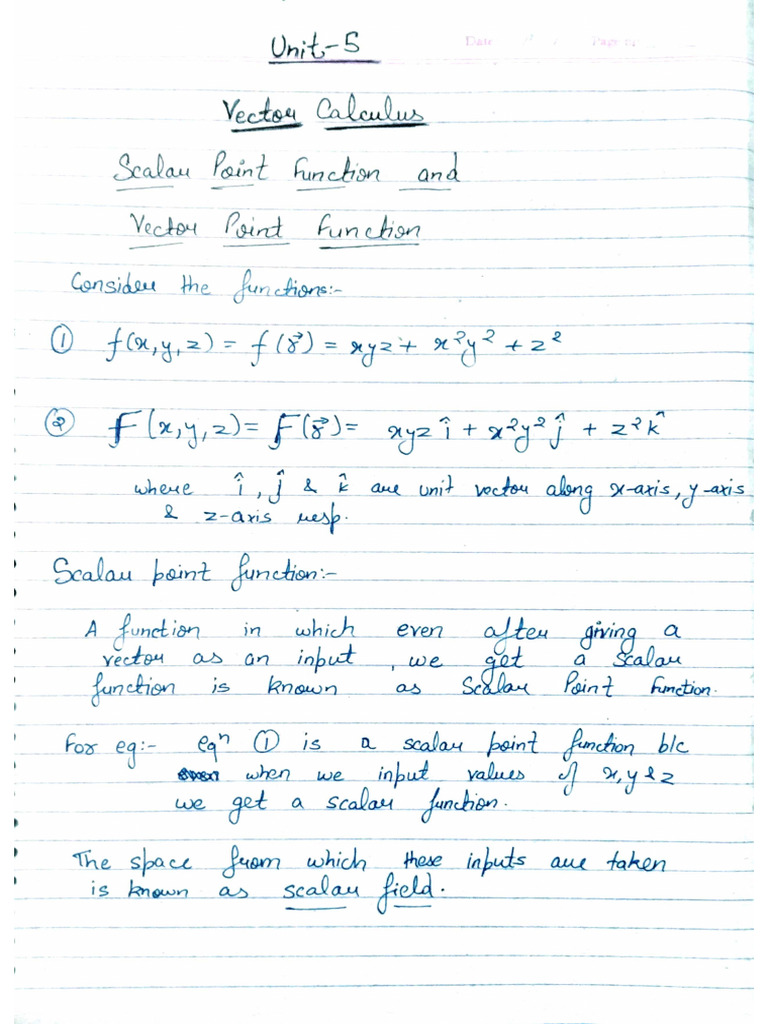 Unit-5
Date Page
Vector Calculus
Scalar Point Function and
Vector Point Function
Consider the functions:-
① f(x,y,z) = f(r⃗) = xyz + x²y² + z²
② F(x,y,z) = F(r⃗) = xyz î + x²y² ĵ + z² k̂
where î, ĵ & k̂ are unit vector along x-axis, y-axis
& z-axis resp.
Scalar point function:-
A function in which even after giving a
vector as an input, we get a scalar
function is known as Scalar Point Function.
For eg:- eqⁿ ① is a scalar point function b/c
when we input values of x,y & z
we get a scalar function.
The space from which these inputs are taken
is known as scalar field.